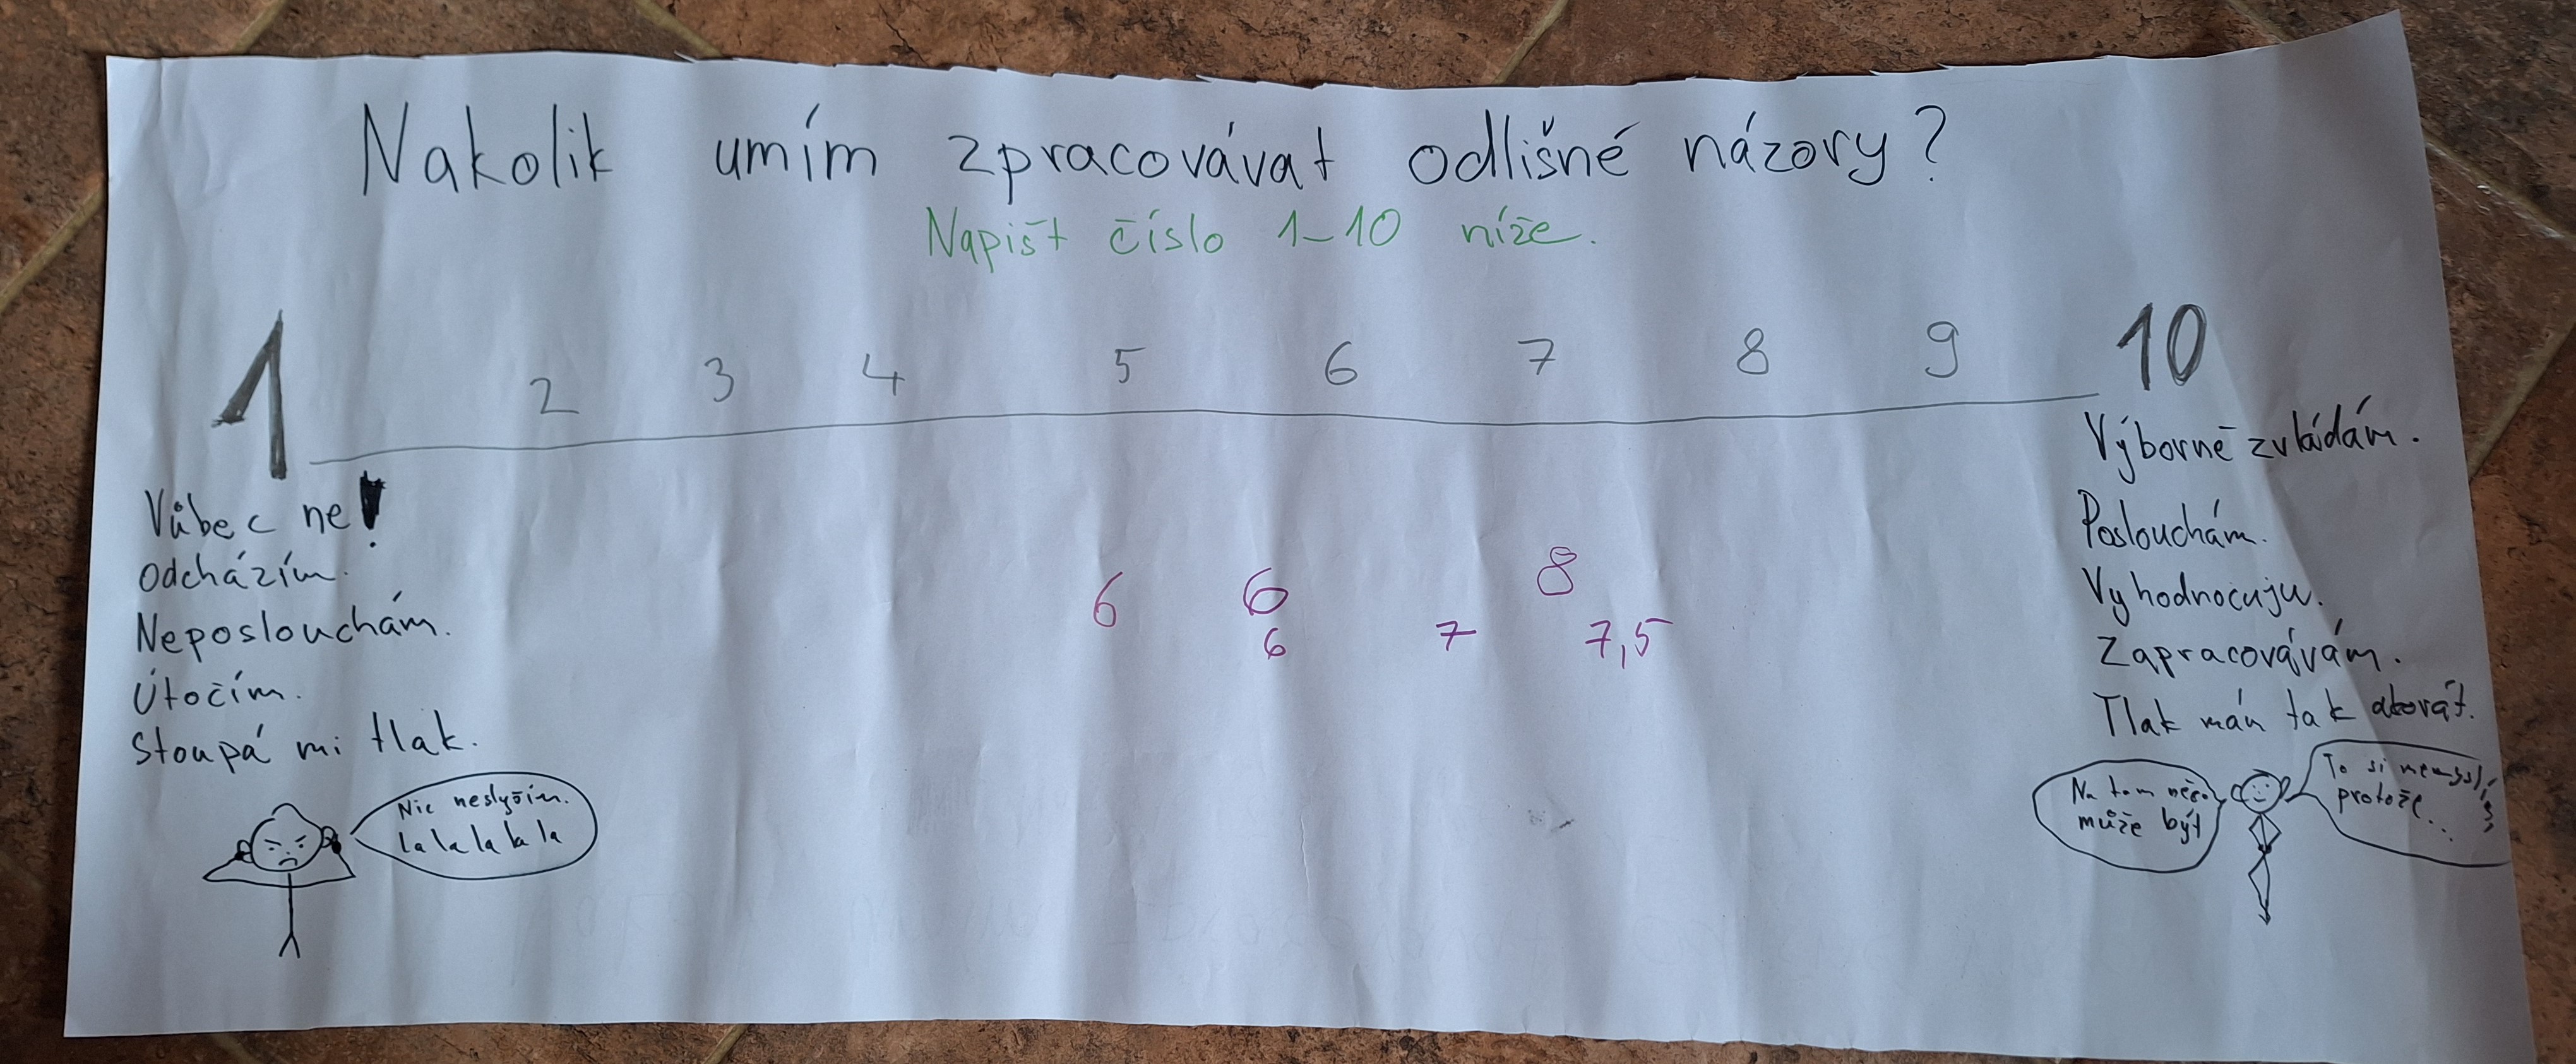 Nakolik umím zpracovávat odlišné názory?
Napišt číslo 1-10 níže.
1 2 3 4 5 6 7 8 9 10
Vůbec ne!
Odcházím.
Neposlouchám.
Útočím.
Stoupá mi tlak.
Nic neslyším.
lalalalala
6 6 8
6 7 7,5
Výborně zvládám.
Poslouchám.
Vyhodnocuju.
Zapracovávám.
Tlak mán tak akorát.
Na tom něco
může být
To si nemyslím
protože...